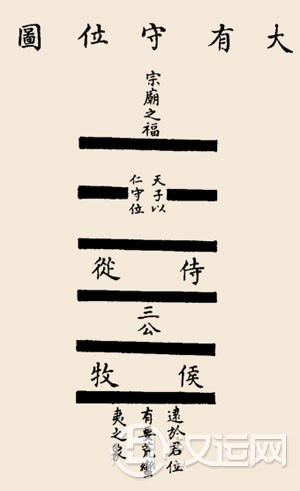 大有守位圖
宗廟之福
天子以
仁守位
侍從
三公
侯牧
遠於君位
有要荒蠻
夷之象
汉运网